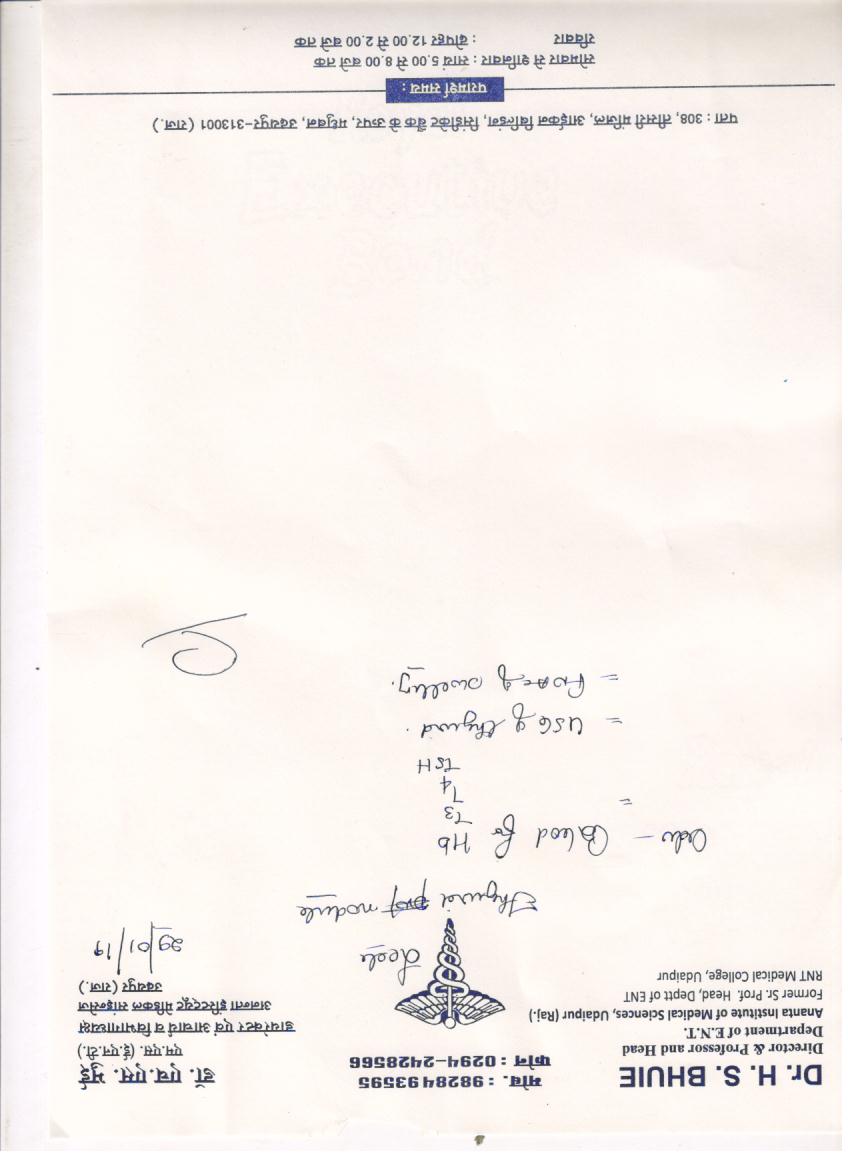 Dr. H. S. BHUIE
Director & Professor and Head
Department of E.N.T.
Ananta Institute of Medical Sciences, Udaipur (Raj.)
Former Sr. Prof. Head, Deptt of ENT
RNT Medical College, Udaipur
मोब. : 9828493595
फोन : 0294-2428566
डॉ. एच.एस. भुई
एम.एस. (ई.एन.टी.)
डायरेक्टर एवं आचार्य व विभागाध्यक्ष
अनन्ता इंस्टिट्यूट मेडिकल साइन्सेज
उदयपुर (राज.)
29/01/19
Thyroid nodule
Blood for Hb
T3
= T4
TSH
= USG of thyroid.
= FNAC of swelling.
पता : 308, तीसरी मंजिल, आईकन बिल्डिंग, सिंडीकेट बैंक के ऊपर, मधुबन, उदयपुर-313001 (राज.)
परामर्श समय :
सोमवार से शनिवार : सायं 5.00 से 8.00 बजे तक
रविवार : दोपहर 12.00 से 2.00 बजे तक